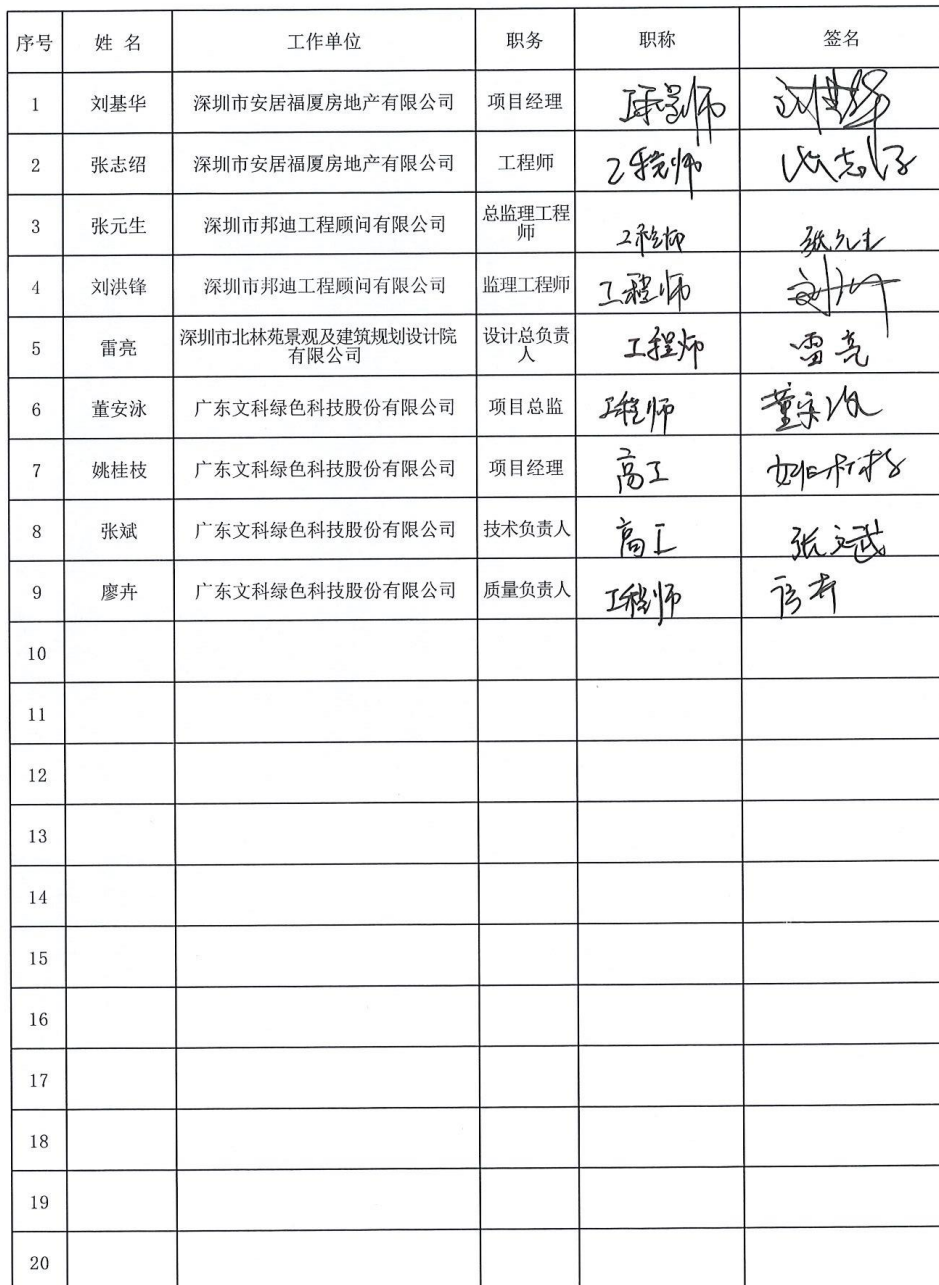 序号 姓 名 工作单位 职务 职称 签名
1 刘基华 深圳市安居福厦房地产有限公司 项目经理 工程师
2 张志绍 深圳市安居福厦房地产有限公司 工程师 工程师
3 张元生 深圳市邦迪工程顾问有限公司 总监理工程
师 工程师 张元生
4 刘洪锋 深圳市邦迪工程顾问有限公司 监理工程师 工程师
5 雷亮 深圳市北林苑景观及建筑规划设计院
有限公司 设计总负责
人 工程师 雷亮
6 董安泳 广东文科绿色科技股份有限公司 项目总监 工程师
7 姚桂枝 广东文科绿色科技股份有限公司 项目经理 高工 姚桂枝
8 张斌 广东文科绿色科技股份有限公司 技术负责人 高工
9 廖卉 广东文科绿色科技股份有限公司 质量负责人 工程师
10
11
12
13
14
15
16
17
18
19
20